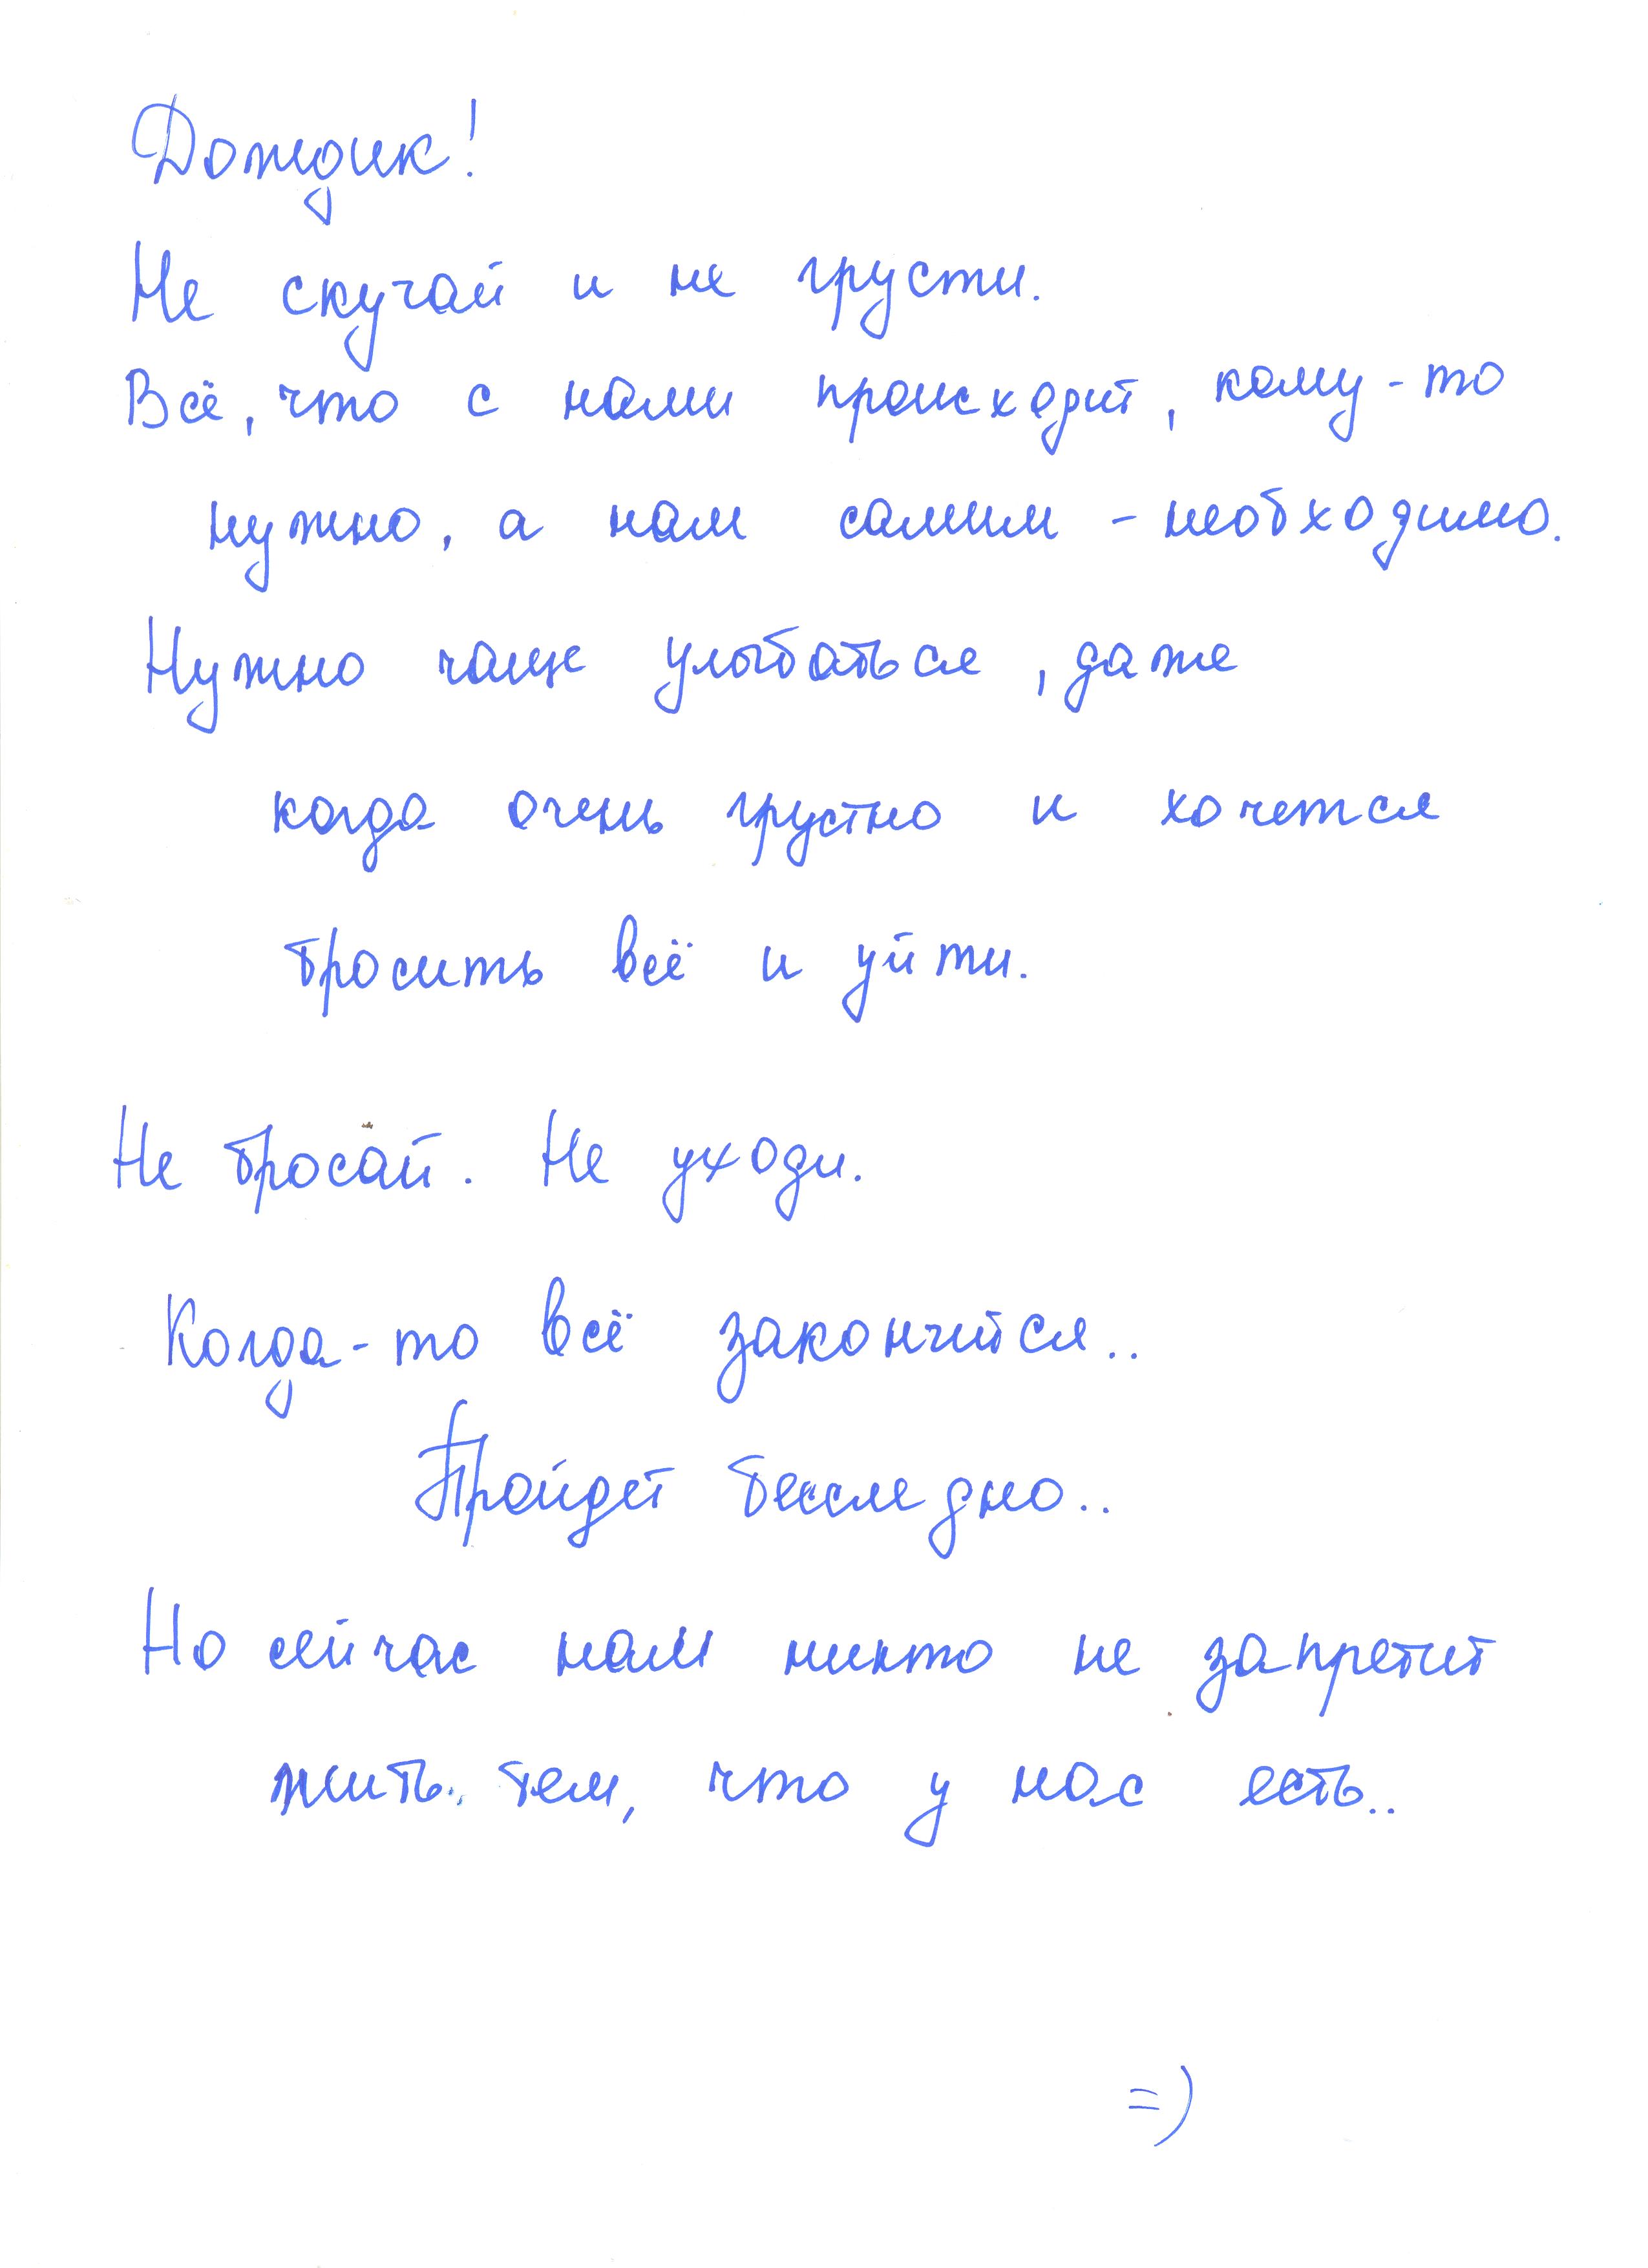 Дождик!
Не скучай и не грусти.
Всё, что с нами происходит, кому-то
нужно, а нам самим - необходимо.
Нужно чаще улыбаться, даже
когда очень грустно и хочется
бросить всё и уйти.
Не бросай. Не уходи.
Когда-то всё закончится..
Пройдет бесследно..
Но сейчас нам никто не запретит
жить тем, что у нас есть..
=)